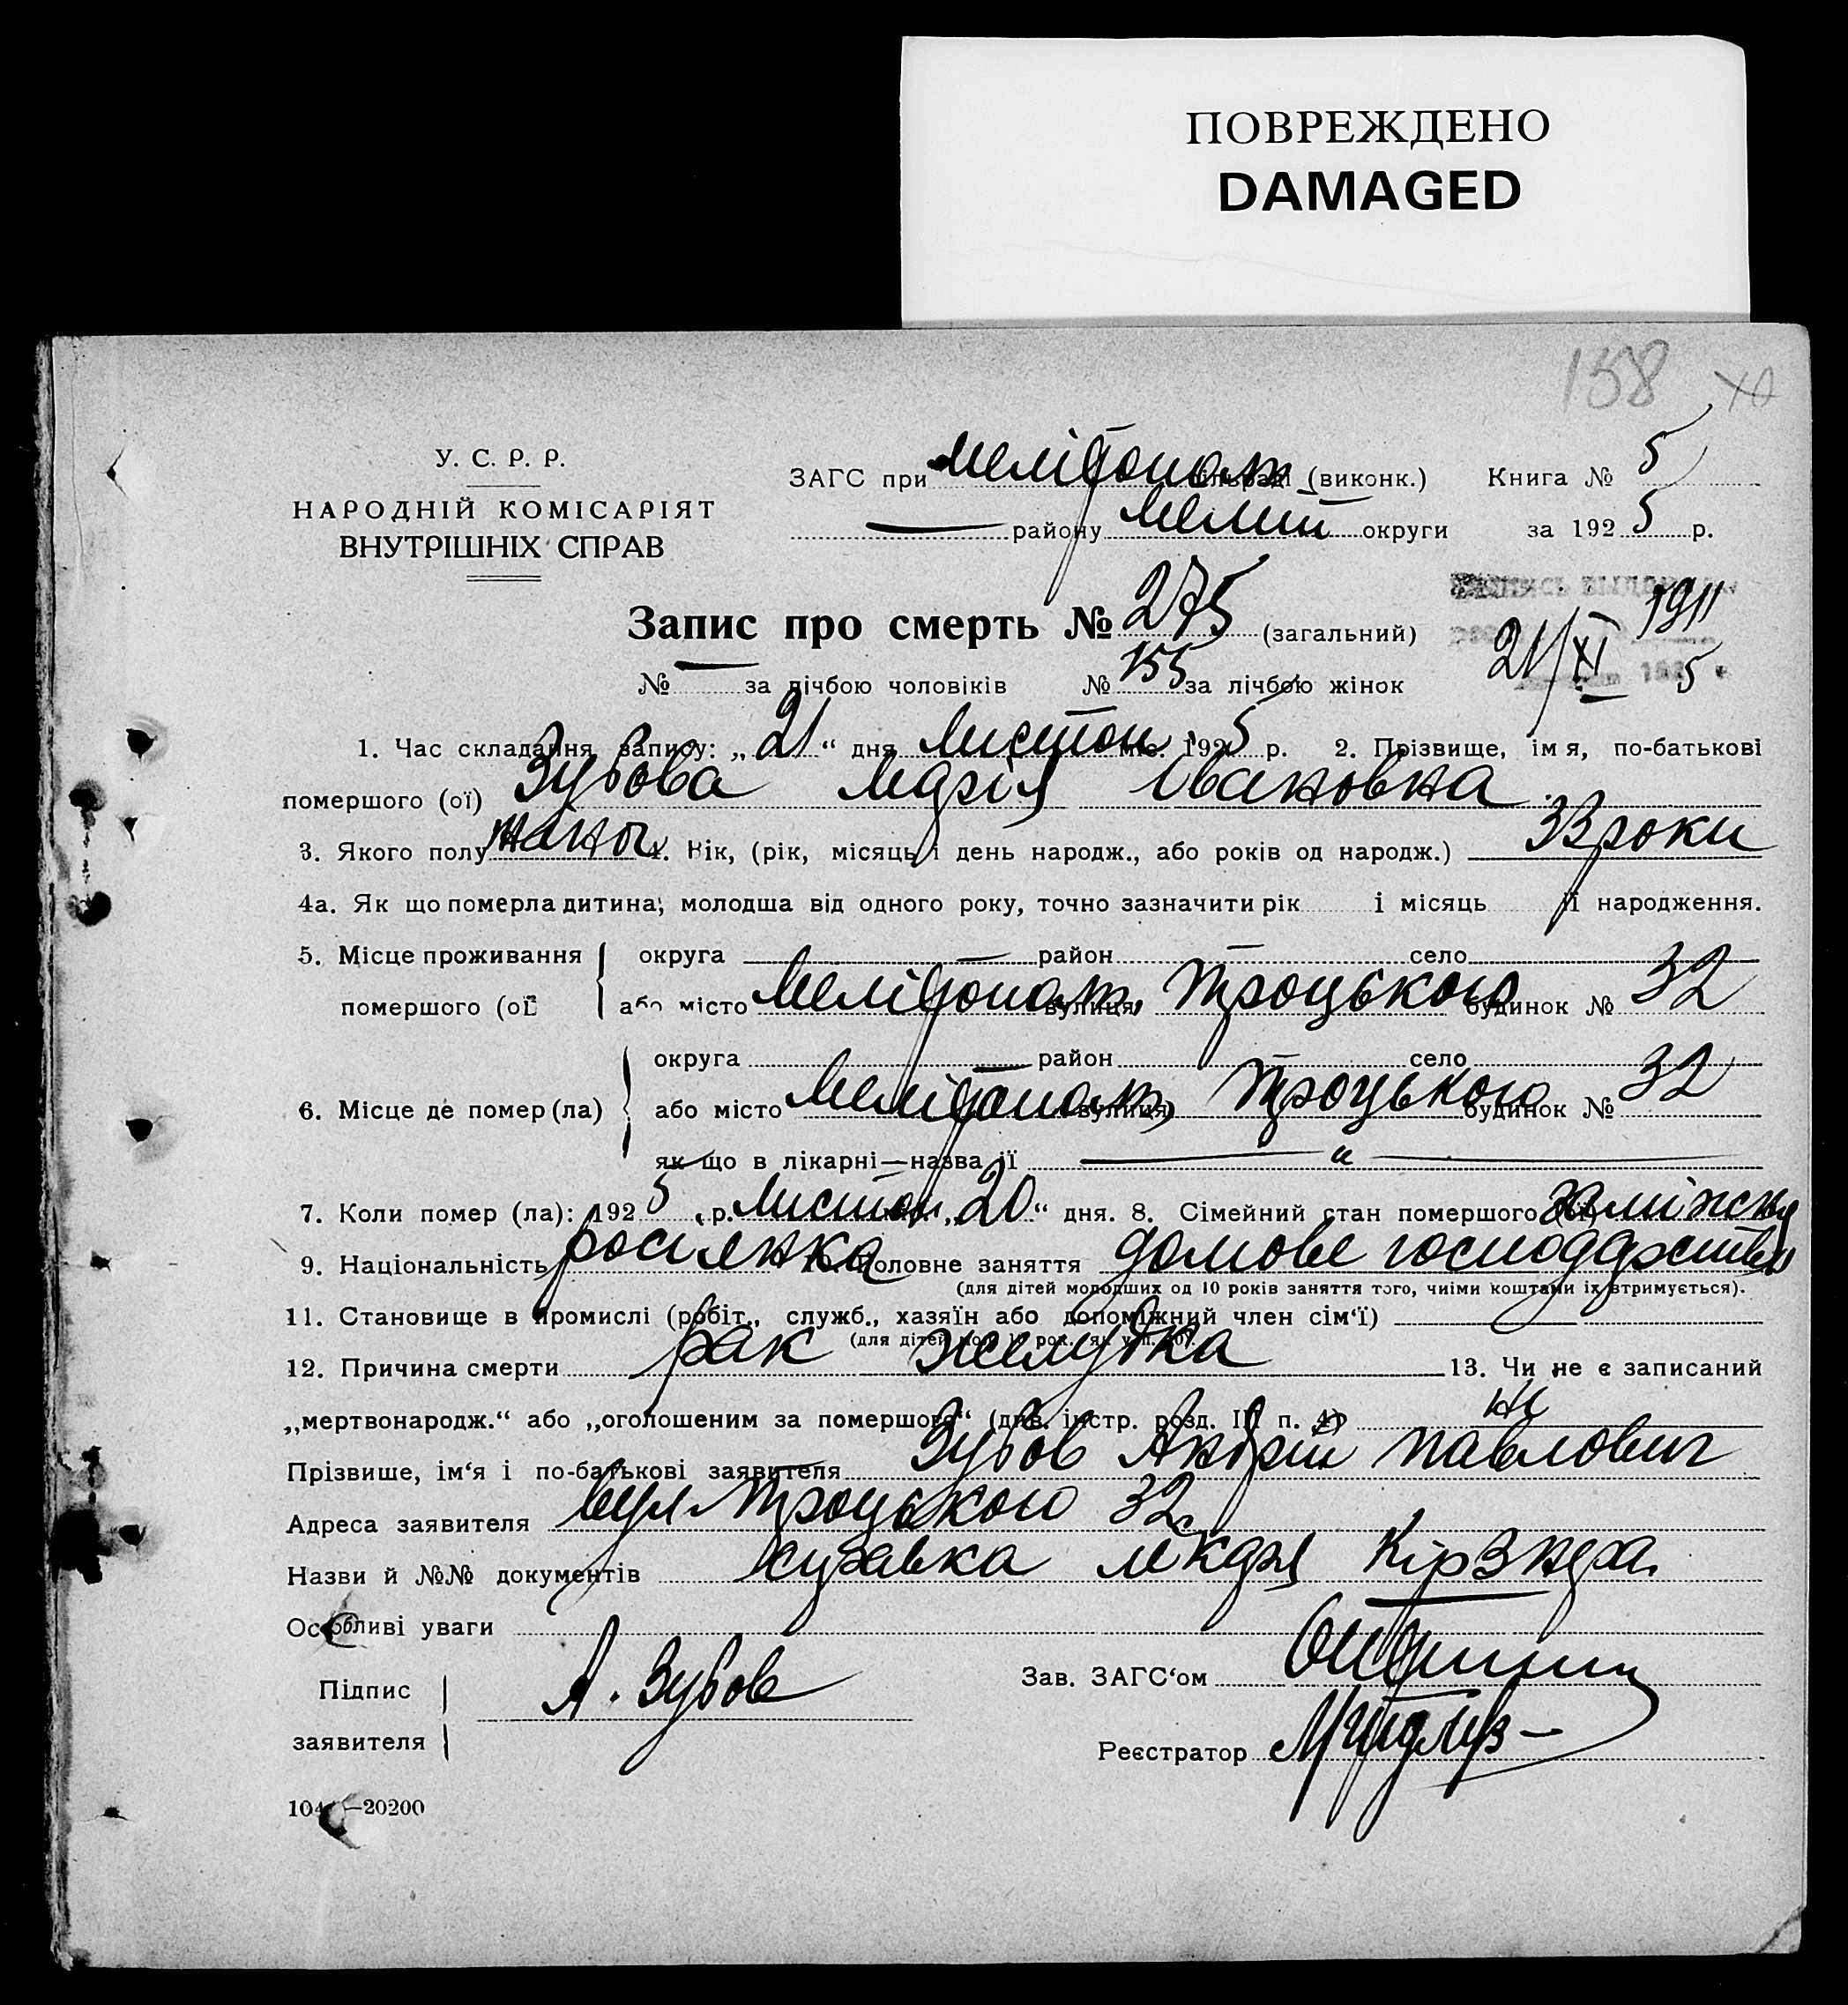 ПОВРЕЖДЕНО
DAMAGED
158
У. С. Р. Р.
НАРОДНІЙ КОМІСАРІЯТ
ВНУТРІШНІХ СПРАВ
ЗАГС при Мелітопол (виконк.) Книга № 5
— району Меліт округи за 1925 р.
Запис про смерть № 275 (загальний)
№ — за лічбою чоловіків № 155 за лічбою жінок
21/XI 5
1. Час складання запису: „21“ дня Листоп. міс. 1925 р. 2. Прізвище, імя, по-батькові
помершого (ої) Зубова Марія Івановна
3. Якого полу 4. Вік, (рік, місяць і день народж., або років од народж.) 33 роки
4а. Як що померла дитина, молодша від одного року, точно зазначити рік і місяць її народження.
5. Місце проживання помершого (ої) округа — район — село
або місто Мелітополь вулиця Троцького будинок № 32
6. Місце де помер (ла) округа — район — село
або місто Мелітополь вулиця Троцького будинок № 32
як що в лікарні—назва її — „ —
7. Коли помер (ла): 1925 р. Листоп „20“ дня. 8. Сімейний стан помершого (ої) заміжня
9. Національність росіянка 10. Головне заняття домове господарство
(для дітей молодших од 10 років заняття того, чиїми коштами їх втримується).
11. Становище в промислі (робіт., служб., хазяїн або допоміжний член сім‘ї) —
12. Причина смерти рак желудка 13. Чи не є записаний
„мертвонародж.“ або „оголошеним за померщого“ (див. інстр. розд. III п. 4) ні
Прізвище, ім‘я і по-батькові заявителя Зубов Андрій Павлович
Адреса заявителя вул Троцького 32
Назви й №№ документів лікаря
Особливі уваги
Підпис заявителя А. Зубов
Зав. ЗАГС‘ом
Реєстратор
—20200